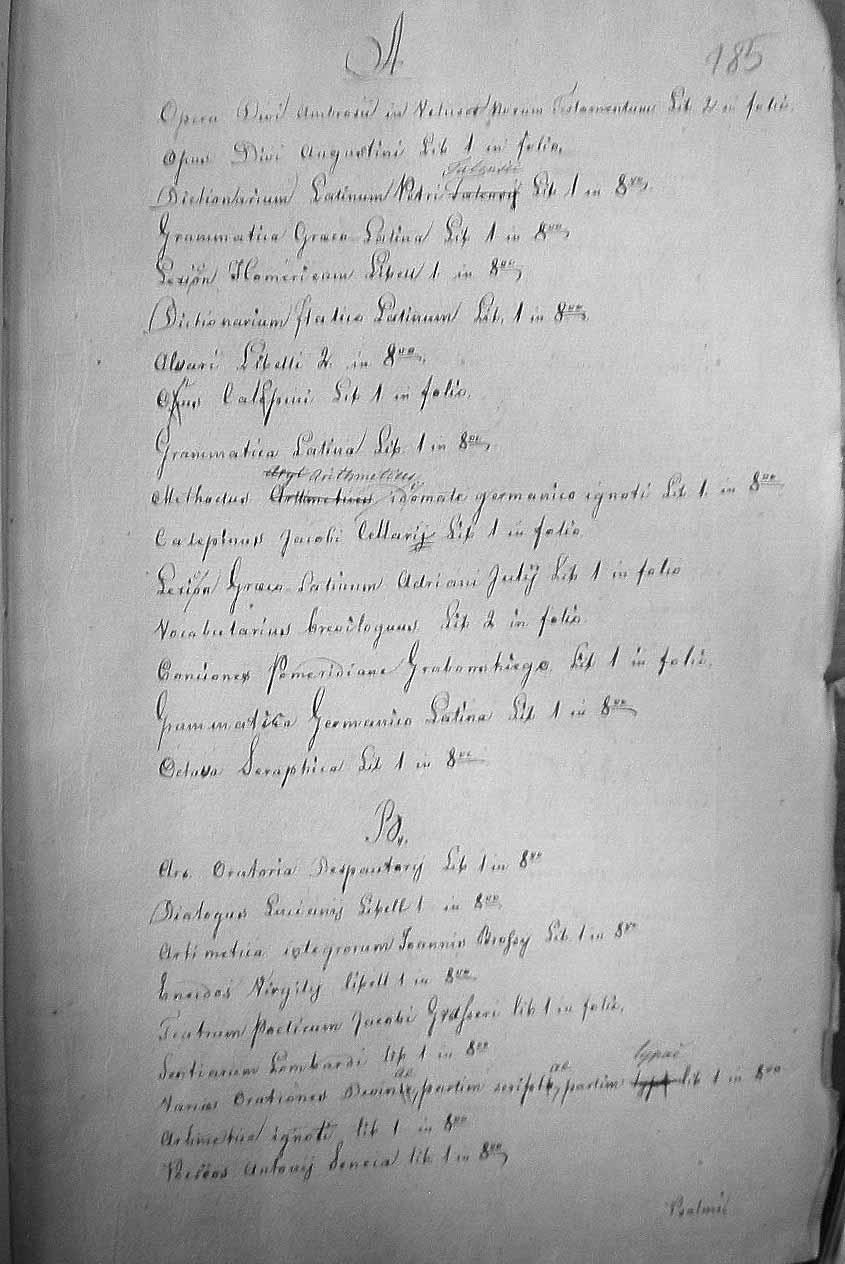 A
185
Opera Divi Ambrosii in Vetus et Novum Testamentum Lib. 2 in folio.
Opus Divi Augustini Lib 1 in folio.
Dictionarium Latinum Petri Lib 1 in 8vo.
Grammatica Græco Latina Lib 1 in 8vo
Lexicon Homericum Libell 1. in 8vo
Dictionarium Italico Latinum Lib. 1 in 8vo
Alvari Libelli 2 in 8vo.
Opus Calepini Lib 1 in folio.
Grammatica Latina Lib. 1 in 8vo
Arithmeticus
Methodus Arithmeticus idiomate germanico ignoti Lib 1. in 8vo
Calepinus Jacobi Cellarij Lib 1 in folio.
Lexicon Græco Latinum Adriani Julij Lib 1 in folio
Vocabularius breviloquus Lib 2 in folio.
Conciones Pomeridianæ Grabowskiego Lib 1 in folio.
Grammatica Germanico Latina Lib 1 in 8vo
Octava Seraphica Lib 1 in 8vo
B.
Ars. Oratoria Despauterij Lib 1 in 8vo
Dialogus Lucianij Libell 1 in 8vo
Aritmetica integrorum Joannis Brossy Lib. 1 in 8vo
Eneidos Virgilij libell 1 in 8vo
Teatrum Poeticum Jacobi lib 1 in folio.
Sentiarum Lombardi lib 1 in 8vo
ae ae typae
Variae Orationes partim script, partim lib 1 in 8vo
Aritmetica ignoti lib 1 in 8vo
Antonij Seneca lib. 1 in 8vo
Psalmi